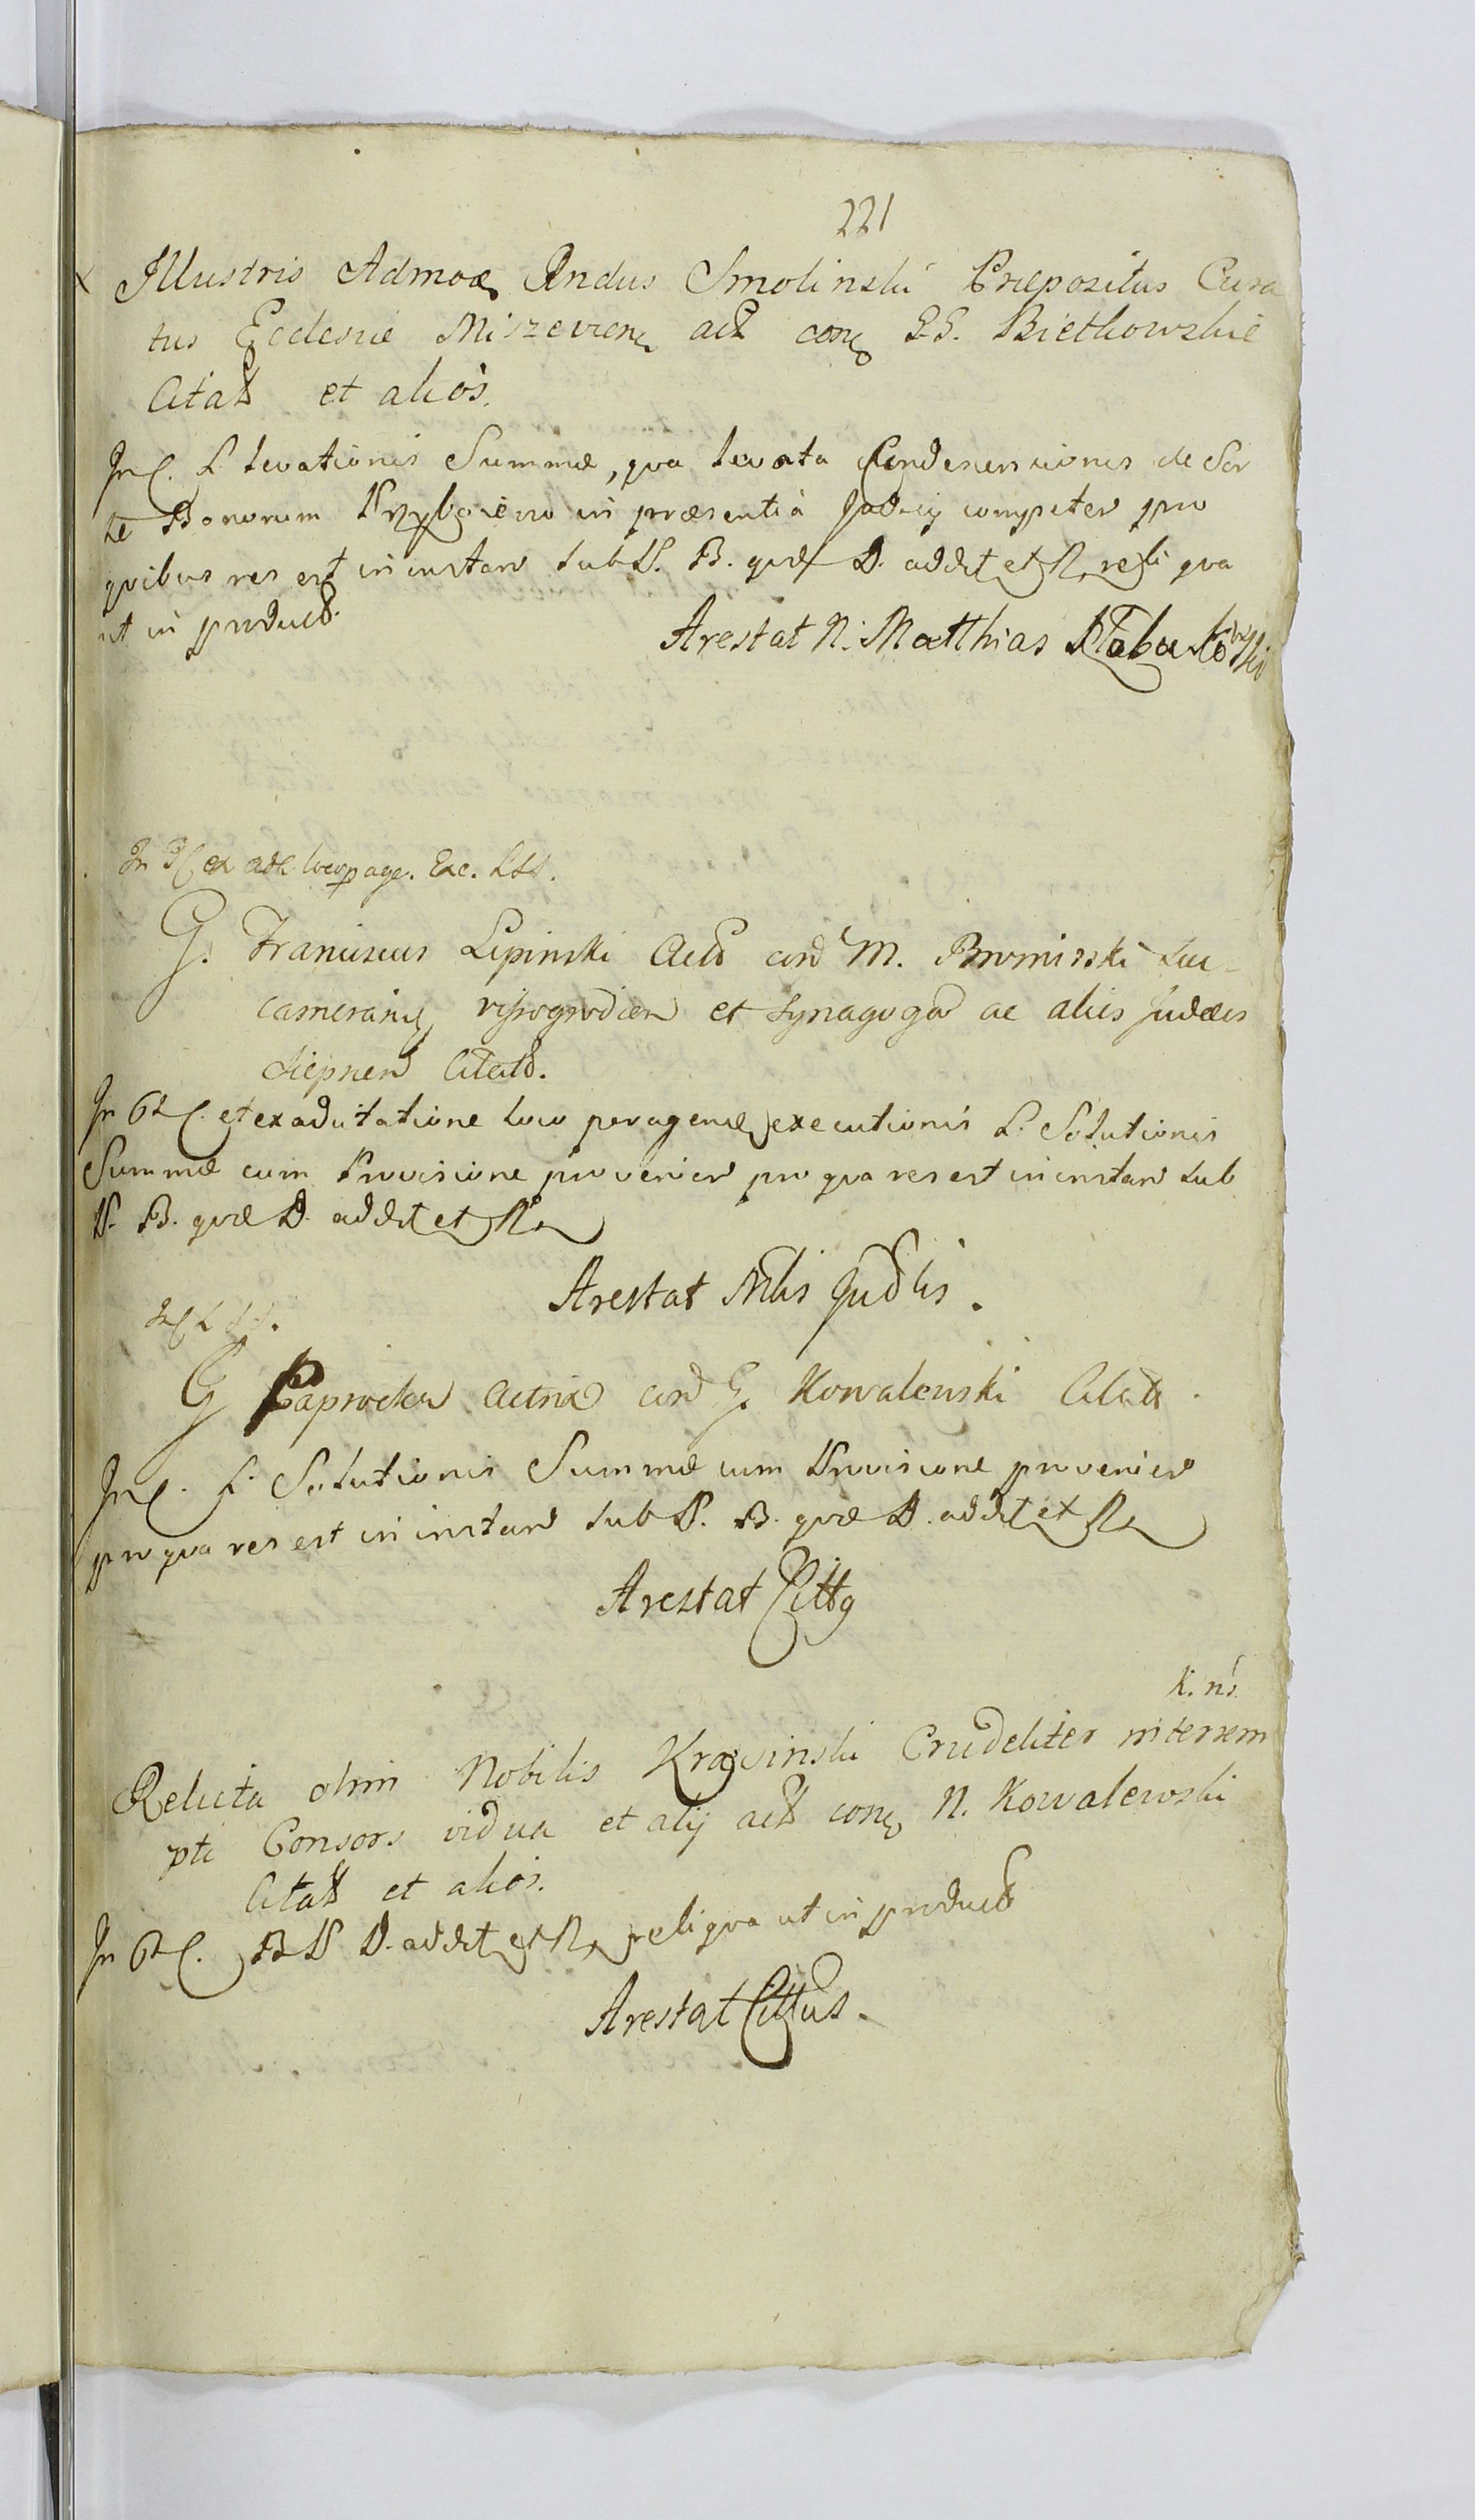 221
Illustris Admod Rndus Smolinski Præpositus Cura
tus Ecclesiæ Miszeviens act con G.G. Bietkowskie
Citat et alios.
In C. L. levationis Summæ, qua levata Condescensionis de Sor
te Bonorum Przybojewo in præsentia Judicy competen pro
quibus res est in instan sub P. B. quæ D. addit et R reliqua
ut in product
Arestat N. Matthias
In ex adc loco page. Exc. LSS.
G. Franciscus Lipinski Act con M. Bromirski Suc
camerariu vissogrodien et Synagoga ac aliis Judæis
Siepnen Citato.
In C. et ex adcitatione loco peragenæ executionis L. Solutionis
Summæ cum Provisione provenien pro qua res est in instan sub
P. B. quæ D. addit et R
Arestat Mlis Judlis.
G Paprocka Actrix con G. Kowalewski Citat.
In C. L. Solutionis Summæ cum Provisione provenien
pro qua res est in instan sub P. B. quæ D. addit et R
Arestat Citt9
K. ns
Relicta olim Nobilis Krajewinski Crudeliter interem
pti Consors vidua et alij act con N. Kowalewski
Citat et alios.
In C. B P D. addit et R reliqua ut in product
Arestat Cittus.